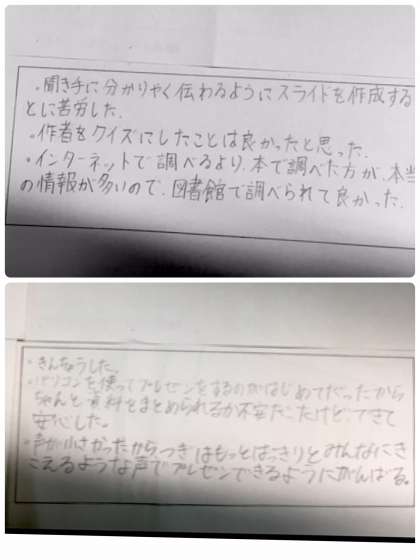 ・聞き手に分かりやく伝わるようにスライドを作成する
とに苦労した.
・作者をクイズにしたことは良かったと思った.
・インターネットで調べるより、本で調べた方が、本当
の情報が多いので、図書館で調べられて良かった.
・きんちょうした。
・パソコンを使ってプレゼンをするのがはじめてだったから
ちゃんと資料をまとめられるか不安だったけど、できて
安心した。
・声が小さかったからつぎはもっとはっきりとみんなにき
こえるような声でプレゼンできるようにがんばる。